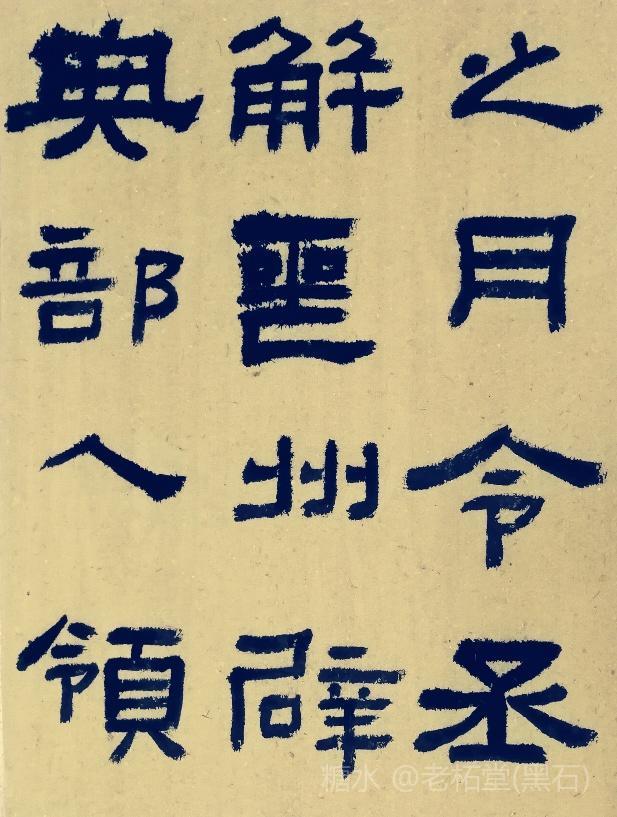 之月令丞
解州辟
典部入領
糖水 @老柘堂(黑石)